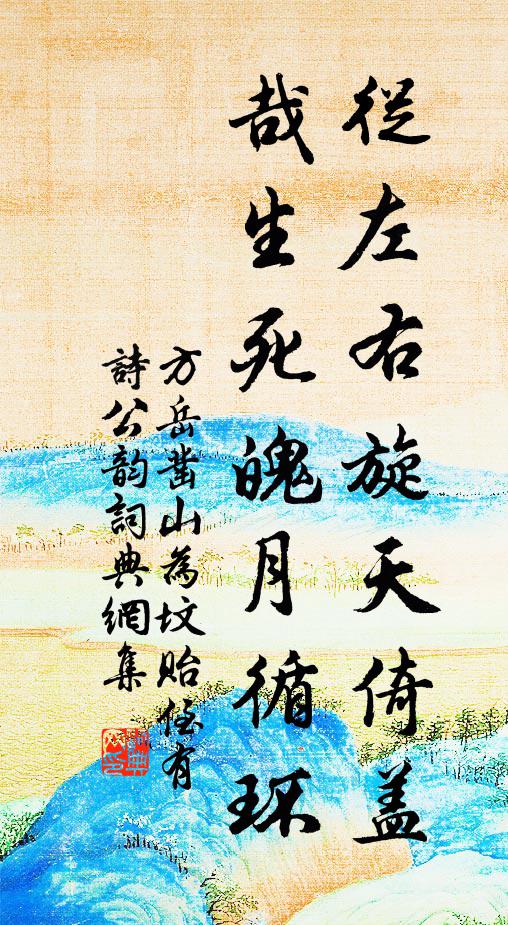 從左右旋天倚蓋
哉生死魄月循環
方岳凿山為坟貽侄有
詩公韵詞典網集